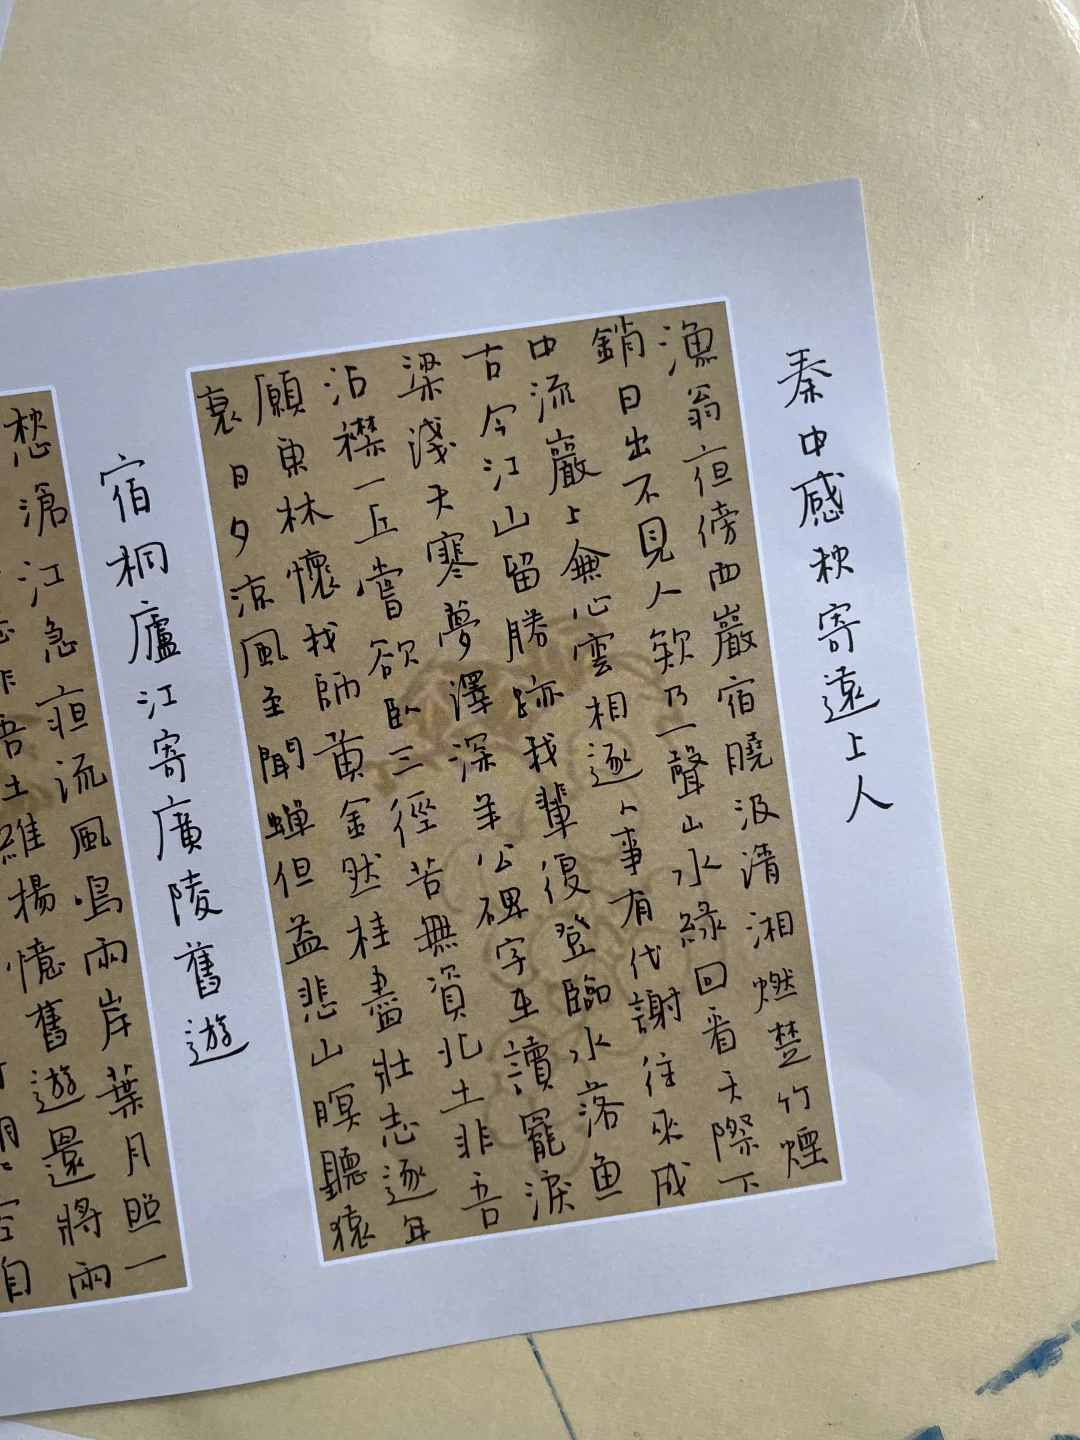 秦中感秋寄遠上人
漁翁夜傍西巖宿曉汲清湘燃楚竹煙
銷日出不見人欸乃一聲山水綠回看天際下
中流巖上無心雲相逐人事有代謝往來成
古今江山留勝跡我輩復登臨水落魚
梁淺天寒夢澤深羊公碑字在讀罷淚
沾襟一丘嘗欲臥三徑苦無資北土非吾
願東林懷我師黃金然桂盡壯志逐年
衰日夕涼風至聞蟬但益悲山暝聽猿
宿桐廬江寄廣陵舊遊
愁滄江急夜流風鳴兩岸葉月照一
非吾土維揚憶舊遊還將兩
自